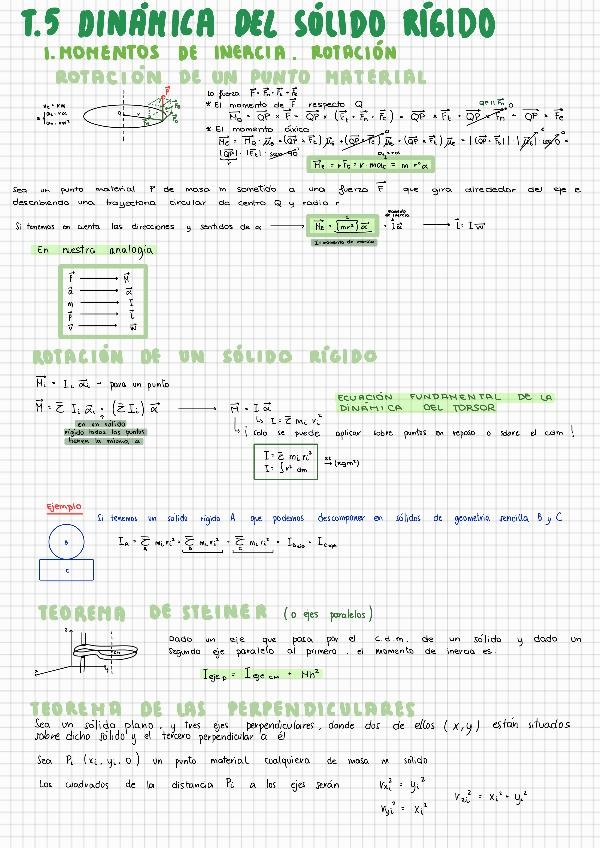 T.5 DINÁMICA DEL SÓLIDO RÍGIDO
1. MOMENTOS DE INERCIA. ROTACIÓN
ROTACIÓN DE UN PUNTO MATERIAL
* El momento de F⃗ respecto Q
* El momento áxico
Sea un punto material P de masa m sometido a una fuerza F⃗ que gira alrededor del eje e
describiendo una trayectoria circular de centro Q y radio r
Si tenemos en cuenta las direcciones y sentidos de α
I: momento de inercia
En nuestra analogía
F⃗ → M⃗
a⃗ → α⃗
m → I
p⃗ → L⃗
v⃗ → w⃗
ROTACIÓN DE UN SÓLIDO RÍGIDO
M⃗i = Ii α⃗i - para un punto
M⃗ = Σ Ii α⃗i = (Σ Ii) α⃗ → M⃗ = I α⃗
en un sólido
rígido todos los puntos
tienen la misma α
I = Σ mi ri²
ECUACIÓN FUNDAMENTAL DE LA
DINÁMICA DEL TORSOR
¡ solo se puede aplicar sobre puntos en reposo o sobre el cdm !
I = Σ mi ri²
I = ∫ r² dm
(kg m²)
Ejemplo
B
C
Si tenemos un sólido rígido A que podemos descomponer en sólidos de geometría sencilla B y C
TEOREMA DE STEINER (o ejes paralelos)
Dado un eje que pasa por el c.d.m. de un sólido y dado un
segundo eje paralelo al primero, el momento de inercia es:
I eje p = I eje CM + Mh²
TEOREMA DE LAS PERPENDICULARES
Sea un sólido plano, y tres ejes perpendiculares, donde dos de ellos (x,y) están situados
sobre dicho sólido y el tercero perpendicular a él
Sea Pi (xi, yi, 0) un punto material cualquiera de masa m sólido
Los cuadrados de la distancia Pi a los ejes serán
rxi² = yi²
ryi² = xi²
rzi² = xi² + yi²